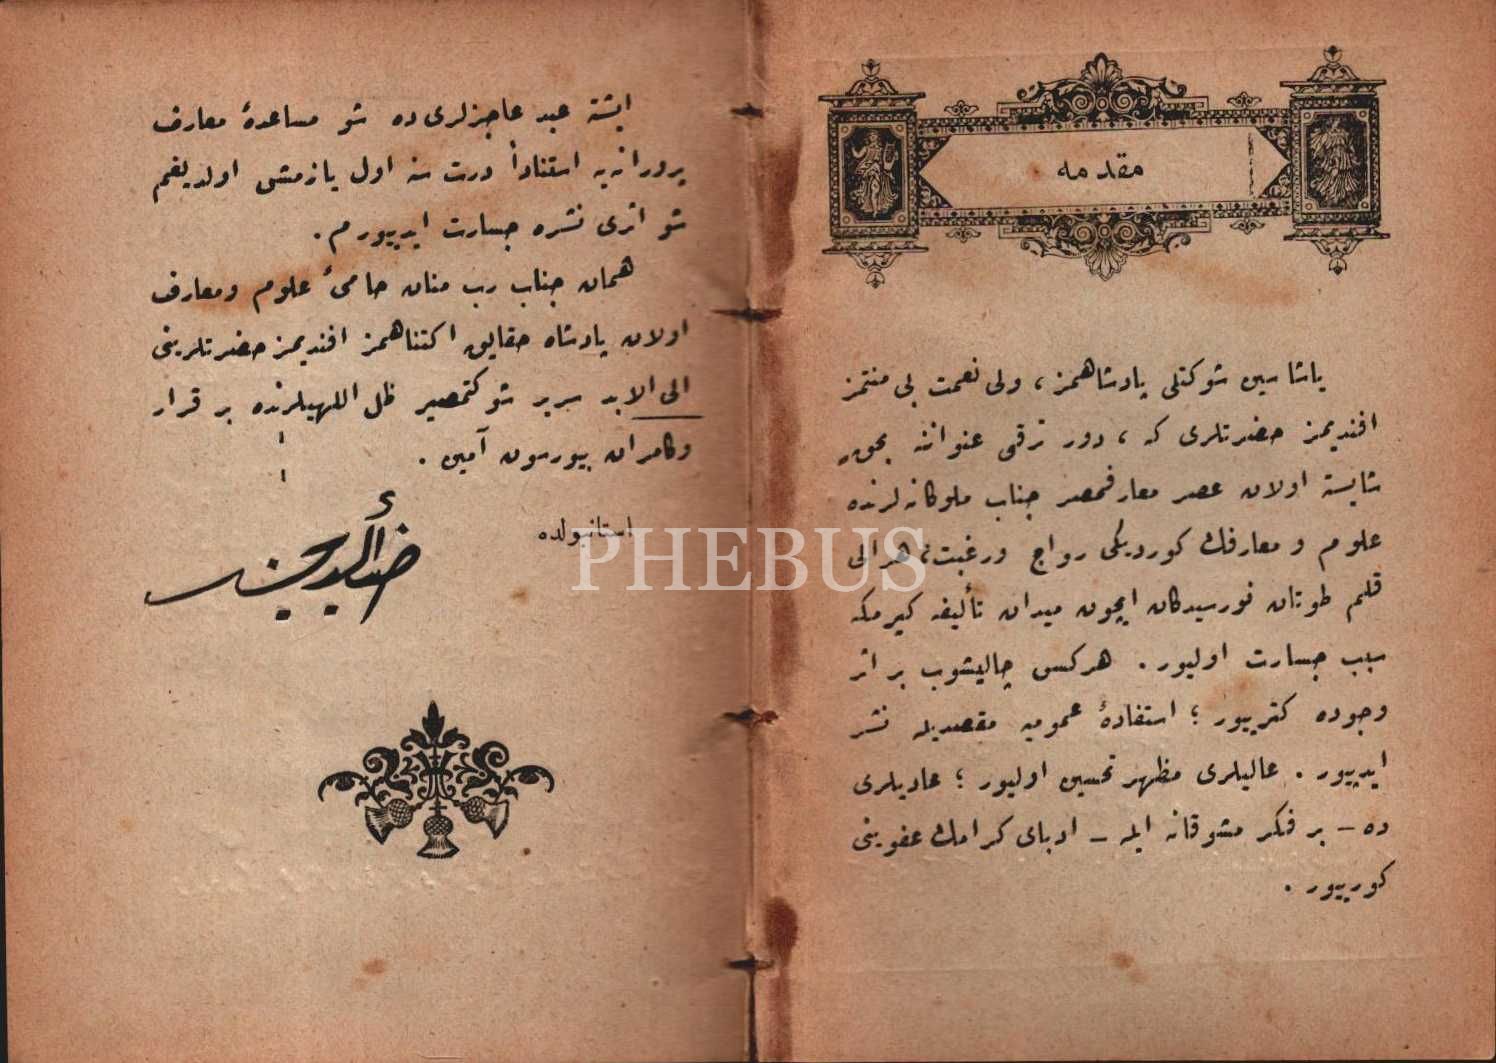 مقدمه
یاشاسین شوكتلی پادشاهمز ، ولی نعمت بی منتمز
افندیمز حضرتلری كه ، دور ترقی عنواننه بحق
شایسته اولان عصر معارفحصر جناب ملوكانه لرنده
علوم و معارفك كوردیكی رواج ورغبت ، هر الی
قلم طوتان نورسیدكان ایچون میدان تألیفه كیرمكه
سبب جسارت اولیور . هركس چالیشوب بر اثر
وجوده كتیرییور ؛ استفادهٔ عمومیه مقصدیله نشر
ایدییور . عالیلری مظهر تحسین اولیور ؛ عادیلری
ده – بر فكر مشوقانه ایله – ادبای كرامك عفوینی
كورییور .
ایشته عبد عاجزلری ده شو مساعدهٔ معارف
پرورانه یه استناداً درت سنه اول یازمش اولدیغم
شو اثری نشره جسارت ایدییورم .
همان جناب رب منان حامیٔ علوم ومعارف
اولان پادشاه حقایق اكتناهمز افندیمز حضرتلرینی
الی الابد سریر شوكتمصیر ظل اللهیلرنده بر قرار
وكامران بیورسون آمین .
استانبولده
PHEBUS